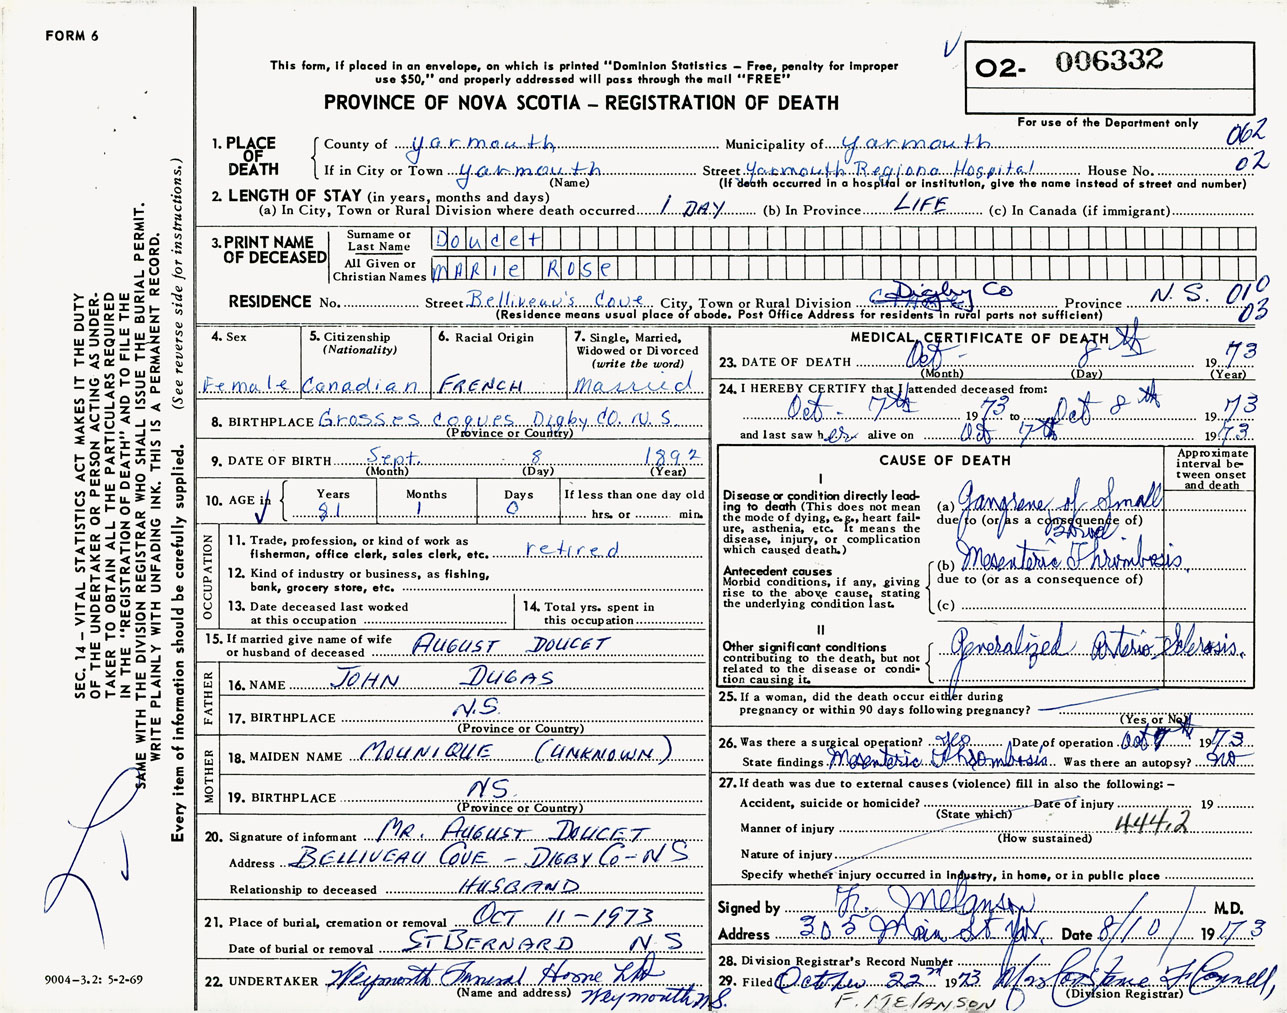 FORM 6
This form, if placed in an envelope, on which is printed "Dominion Statistics – Free, penalty for improper
use $50," and properly addressed will pass through the mail "FREE"
PROVINCE OF NOVA SCOTIA – REGISTRATION OF DEATH
O2- 006332
For use of the Department only
062
02
1. PLACE OF DEATH
County of Yarmouth Municipality of Yarmouth
If in City or Town Yarmouth Street Yarmouth Regiona Hospital House No.
(Name) (If death occurred in a hospital or institution, give the name instead of street and number)
2. LENGTH OF STAY (in years, months and days)
(a) In City, Town or Rural Division where death occurred 1 DAY (b) In Province LIFE (c) In Canada (if immigrant)
3. PRINT NAME OF DECEASED
Surname or Last Name Doucet
All Given or Christian Names MARIE ROSE
RESIDENCE No. Street Belliveau's Cove City, Town or Rural Division Digby Co Province N.S. 010
03
(Residence means usual place of abode. Post Office Address for residents in rural parts not sufficient)
4. Sex Female
5. Citizenship (Nationality) Canadian
6. Racial Origin FRENCH
7. Single, Married, Widowed or Divorced (write the word) Married
8. BIRTHPLACE Grosses Coques Digby CO. N.S.
(Province or Country)
9. DATE OF BIRTH Sept. 8 1892
(Month) (Day) (Year)
10. AGE if Years 81 Months 1 Days 0 If less than one day old
hrs. or min.
OCCUPATION
11. Trade, profession, or kind of work as
fisherman, office clerk, sales clerk, etc. retired
12. Kind of industry or business, as fishing,
bank, grocery store, etc.
13. Date deceased last worked
at this occupation
14. Total yrs. spent in
this occupation
15. If married give name of wife
or husband of deceased AUGUST DOUCET
FATHER
16. NAME JOHN DUGAS
17. BIRTHPLACE N.S.
(Province or Country)
MOTHER
18. MAIDEN NAME MOUNIQUE (UNKNOWN)
19. BIRTHPLACE NS.
(Province or Country)
20. Signature of informant MR. AUGUST DOUCET
Address BELLIVEAU COVE – DIGBY CO – NS
Relationship to deceased HUSBAND
21. Place of burial, cremation or removal OCT 11 – 1973
Date of burial or removal ST BERNARD N S
22. UNDERTAKER Weymouth Funeral Home Ltd
(Name and address) Weymouth N.S.
MEDICAL CERTIFICATE OF DEATH
23. DATE OF DEATH Oct – 8 th 1973
(Month) (Day) (Year)
24. I HEREBY CERTIFY that I attended deceased from:
Oct – 7th 1973 to Oct 8th 1973
and last saw her alive on Oct 7th 1973
CAUSE OF DEATH
Approximate interval between onset and death
I
Disease or condition directly lead-
ing to death (This does not mean
the mode of dying, e.g., heart fail-
ure, asthenia, etc. It means the
disease, injury, or complication
which caused death.)
(a) Gangrene of Small
due to (or as a consequence of)
Bowel
Antecedent causes
Morbid conditions, if any, giving
rise to the above cause, stating
the underlying condition last.
(b) Mesenteric Thrombosis.
due to (or as a consequence of)
(c)
II
Other significant conditions
contributing to the death, but not
related to the disease or condi-
tion causing it.
Generalized Arterio-Sclerosis.
25. If a woman, did the death occur either during
pregnancy or within 90 days following pregnancy?
(Yes or No)
26. Was there a surgical operation? Yes Date of operation Oct 7 1973
State findings Mesenteric Thrombosis Was there an autopsy? no
27. If death was due to external causes (violence) fill in also the following: –
Accident, suicide or homicide? Date of injury 19
(State which)
Manner of injury 444.2
(How sustained)
Nature of injury
Specify whether injury occurred in Industry, in home, or in public place
Signed by F. Melanson M.D.
Address 305 Main St Yar. Date 8/10/ 1973
28. Division Registrar's Record Number
29. Filed October 22nd 1973 Mrs
(Division Registrar)
F. MELANSON
SEC. 14 – VITAL STATISTICS ACT MAKES IT THE DUTY
OF THE UNDERTAKER OR PERSON ACTING AS UNDER-
TAKER TO OBTAIN ALL THE PARTICULARS REQUIRED
IN THE "REGISTRATION OF DEATH" AND TO FILE THE
SAME WITH THE DIVISION REGISTRAR WHO SHALL ISSUE THE BURIAL PERMIT.
WRITE PLAINLY WITH UNFADING INK. THIS IS A PERMANENT RECORD.
Every item of information should be carefully supplied. (See reverse side for instructions.)
9004–3.2: 5-2-69